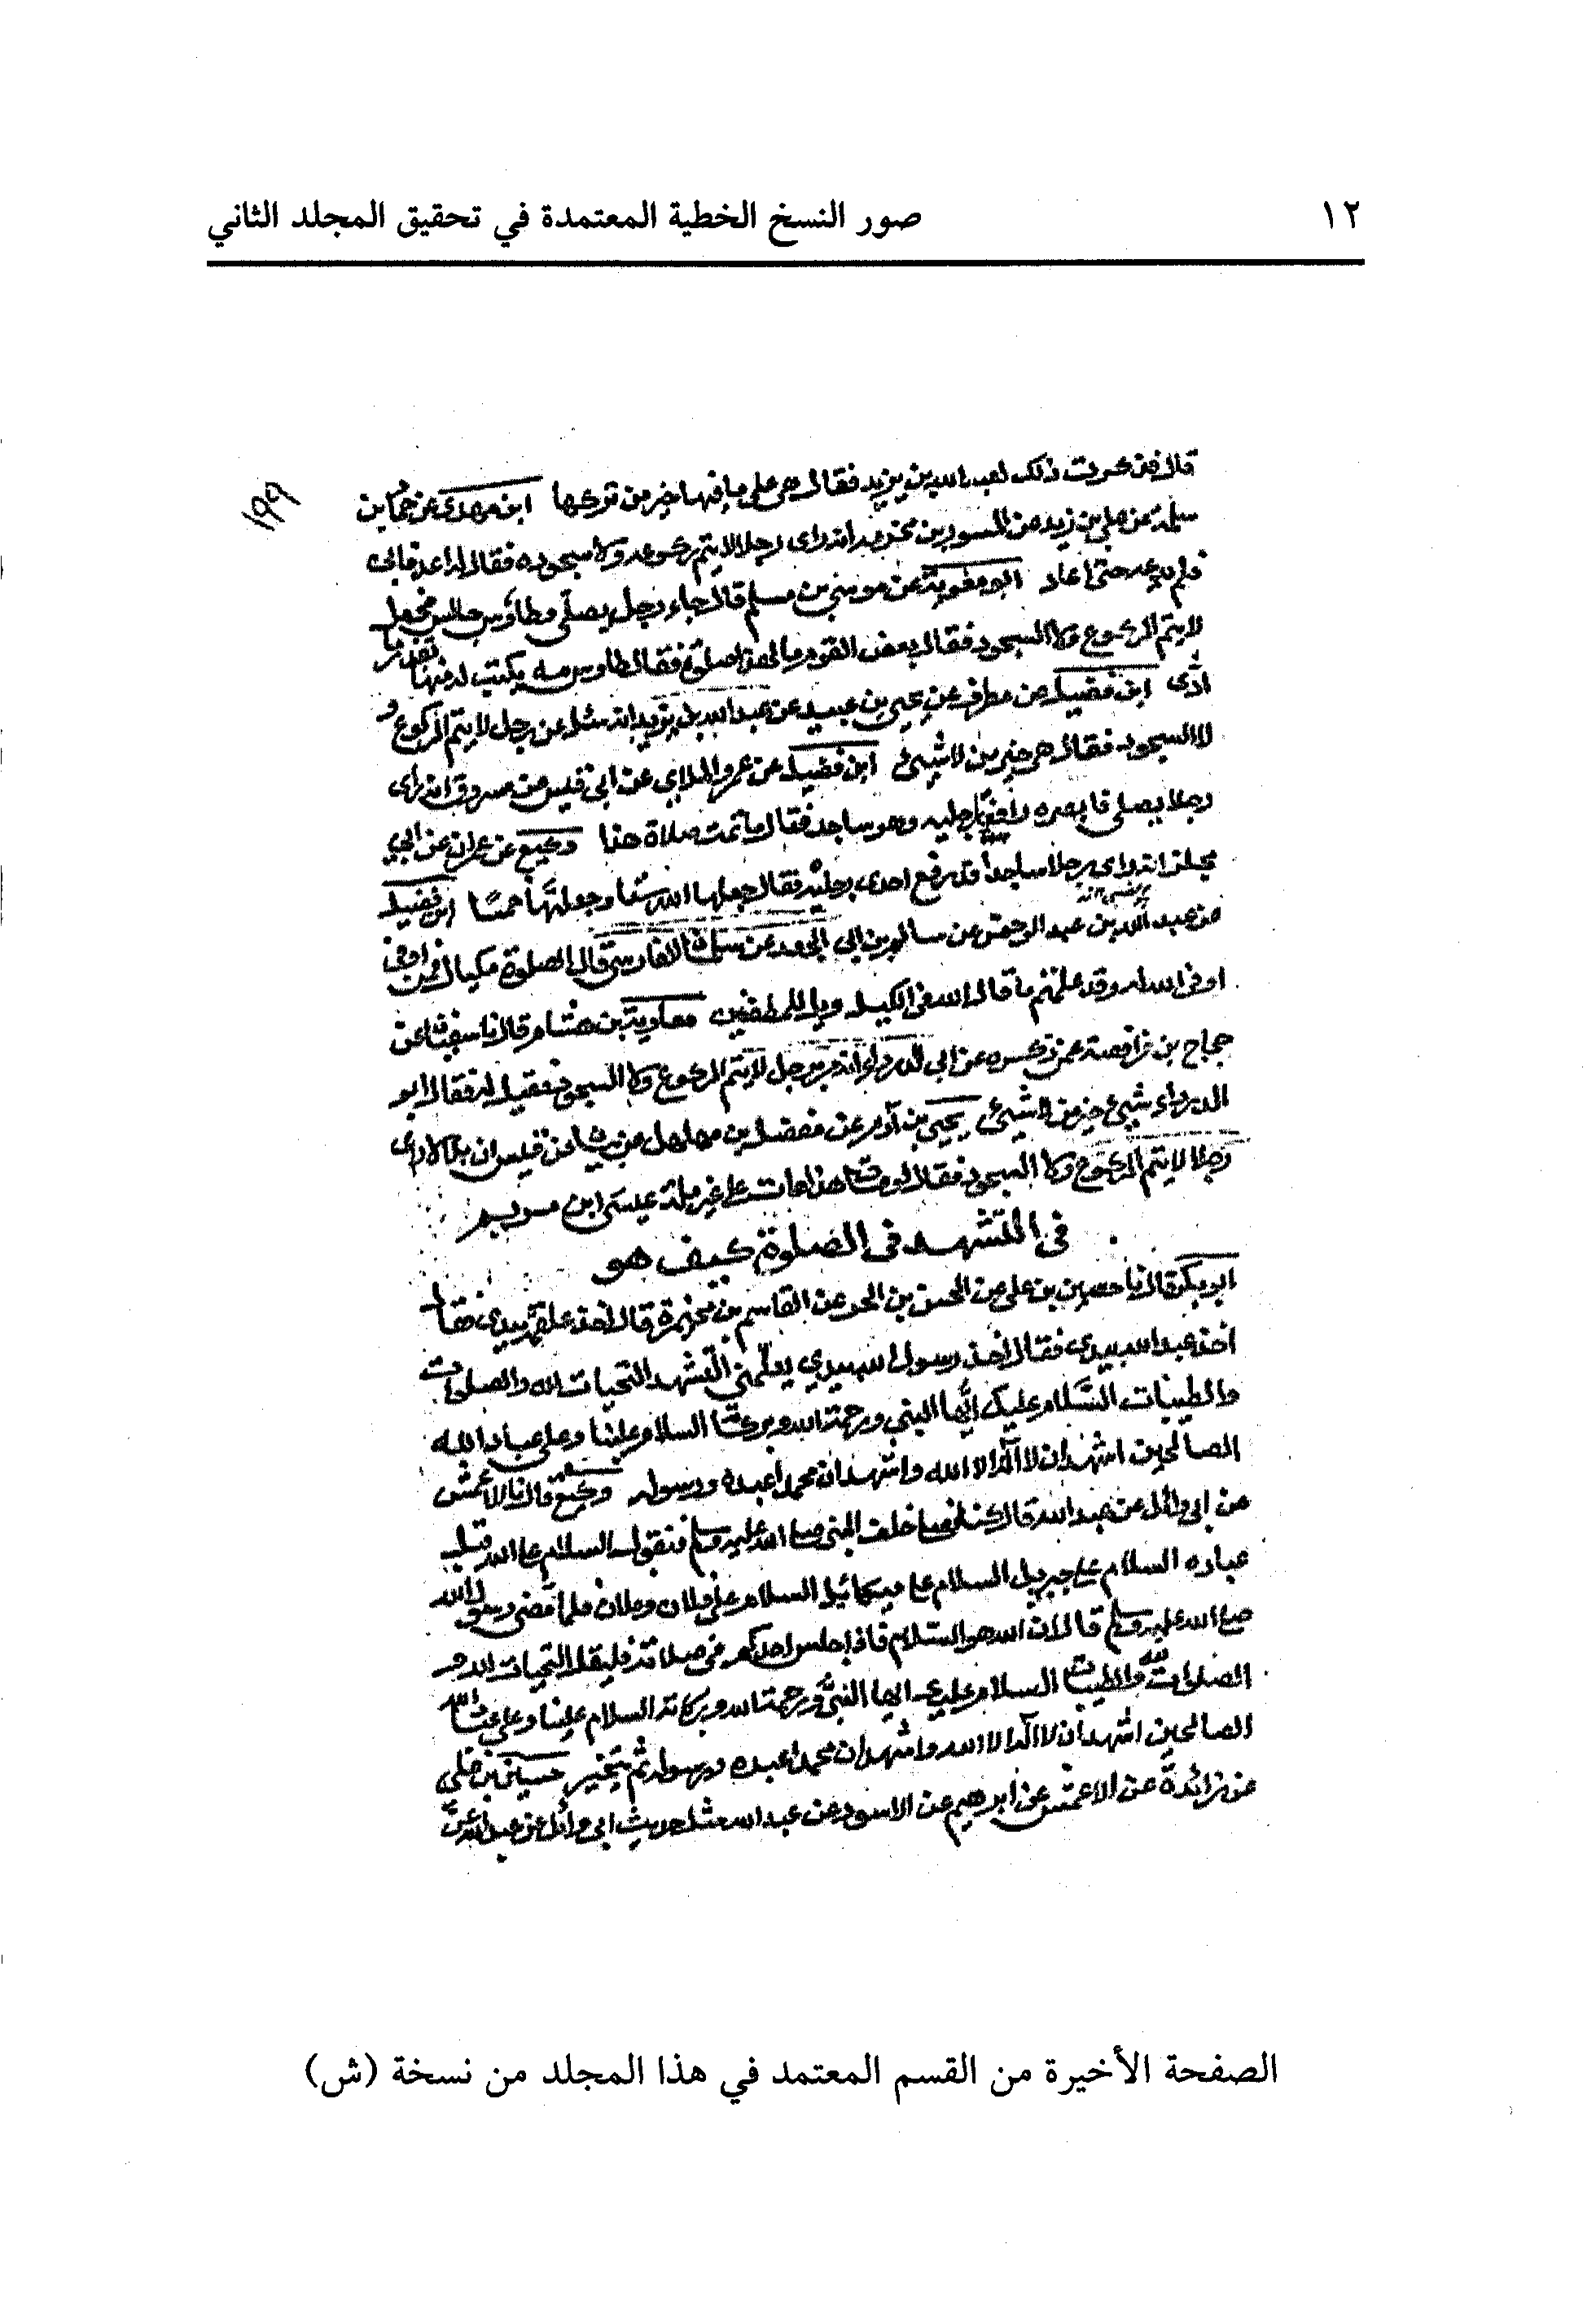 ١٢
صور النسخ الخطية المعتمدة في تحقيق المجلد الثاني
١٩٩
قال فذكرت ذلك لعبد الله بن يزيد فقال هى على ما فيها خير من تركها ابن مهدى عن حماد بن
سلمة عن على بن زيد عن المسور بن مخرمة انه راى رجلا لا يتم ركوعه ولا سجوده فقال له اعد فابى
فلم يدعه حتى اعاد ابو معوية عن موسى بن مسلم قال جاء رجل يصلى وطاوس جالس فجعل
لا يتم الركوع ولا السجود فقال بعض القوم ما لهذا صلوة فقال طاوس مه يكتب له منها بقدر ما
ادى ابن فضيل عن مطرف عن يحيى بن عبيد عن عبد الله بن يزيد انه سئل عن رجل لا يتم الركوع و
لا السجود فقال هى خير من لا شيئ ابن فضيل عن عمرو الملاي عن ابى قيس عن مسروق انه راى
رجلا يصلى فابصره رافعا رجليه وهو ساجد فقال ما تمت صلاة هذا وكيع عن عمران عن ابي
مجلز انه راى رجلا ساجدا قد رفع احدى رجليه فقال جعلها الله ستا وجعلتها خمسا ابن فضيل
عن عبد الله بن عبد الرحمن عن سالم بن ابى الجعد عن سلمان الفارسى قال الصلوة مكيال فمن اوفى
اوفى الله له وقد علمتم ما قال الله فى الكيل ويل للمطففين معاوية بن هشام قال نا سفيان عن
حجاج بن فرافصة عمن ذكره عن ابى الدرداء انه مر برجل لا يتم الركوع ولا السجود فقيل له فقال ابو
الدرداء شيئ خير من لا شيئ يحيى بن آدم عن مفضل بن مهلهل عن بيان عن قيس ان بلالا راى
رجلا لا يتم الركوع ولا السجود فقال لو مات هذا مات على غير ملة عيسى ابن مريم
فى التشهد فى الصلوة كيف هو
ابو بكر قال نا حسين بن على عن الحسن بن الحر عن القاسم بن مخيمرة قال اخذ علقمة بيدى فقال
اخذ عبد الله بيدى فقال اخذ رسول الله بيدي يعلمنى التشهد التحيات لله والصلوات
والطيبات السلام عليك ايها النبى ورحمة الله وبركاته السلام علينا وعلى عباد الله
الصالحين اشهد ان لا اله الا الله واشهد ان محمدا عبده ورسوله وكيع قال نا الاعمش
عن ابى وائل عن عبد الله قال كنا نصلى خلف النبى صلى الله عليه وسلم فنقول السلام على الله قبل
عباده السلام على جبريل السلام على ميكائيل السلام على فلان وفلان فلما قضى رسول الله
صلى الله عليه وسلم قال ان الله هو السلام فاذا جلس احدكم فى صلاته فليقل التحيات لله و
الصلوات والطيبات السلام عليك ايها النبى ورحمة الله وبركاته السلام علينا وعلى عباد الله
الصالحين اشهد ان لا اله الا الله واشهد ان محمدا عبده ورسوله ثم يتخير حسين بن على
عن زائدة عن الاعمش عن ابرهيم عن الاسود عن عبد الله مثل حديث ابى وائل عن عبد الله عن
الصفحة الأخيرة من القسم المعتمد في هذا المجلد من نسخة (ش)